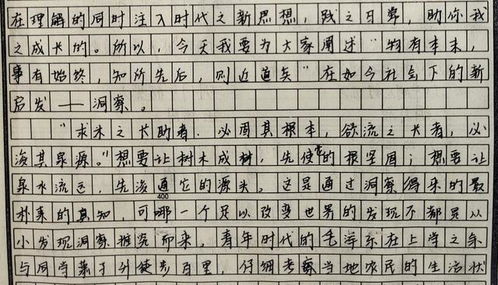 在理解的同时注入时代之新思想，践之日常，助你我
之成长的。所以，今天我要为大家阐述“物有本末，
事有始终，知所先后，则近道矣”在如今社会下的新
启发——洞察。
“求木之长助者，必固其根本，欲流之长者，必
浚其泉源。”想要让树木成树，先使它的根坚固；想要让
泉水流远，先浚通它的源头。这是通过洞察得来的最
400
朴素的真知，可哪一个足以改变世界的发现不都是从
小发现洞察推究而来，青年时代的毛泽东在上学之余
与同学萧子升徒步百里，仔细考察当地农民的生活状